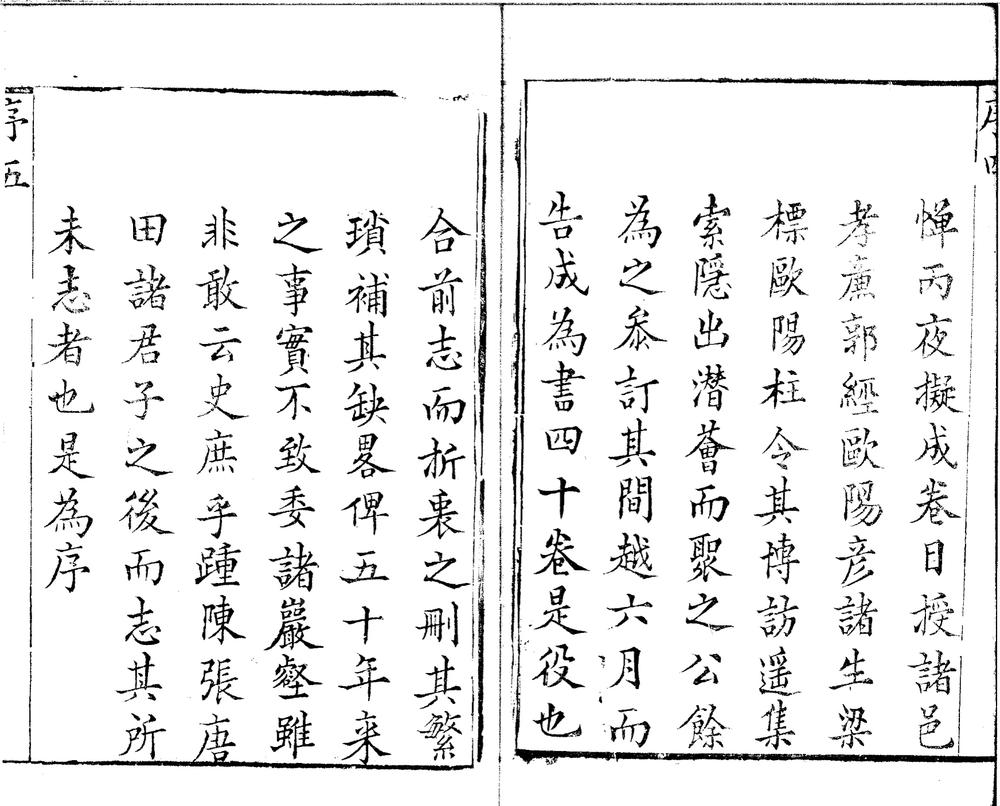 序四
憚丙夜擬成卷日授諸邑
孝廉郭經歐陽彦諸生梁
標歐陽柱令其博訪遥集
索隱出潜薈而聚之公餘
為之叅訂其間越六月而
告成為書四十卷是役也
合前志而折衷之刪其繁
瑣補其缺畧俾五十年来
之事實不致委諸巖壑雖
非敢云史庶乎踵陳張唐
田諸君子之後而志其所
未志者也是為序
序五